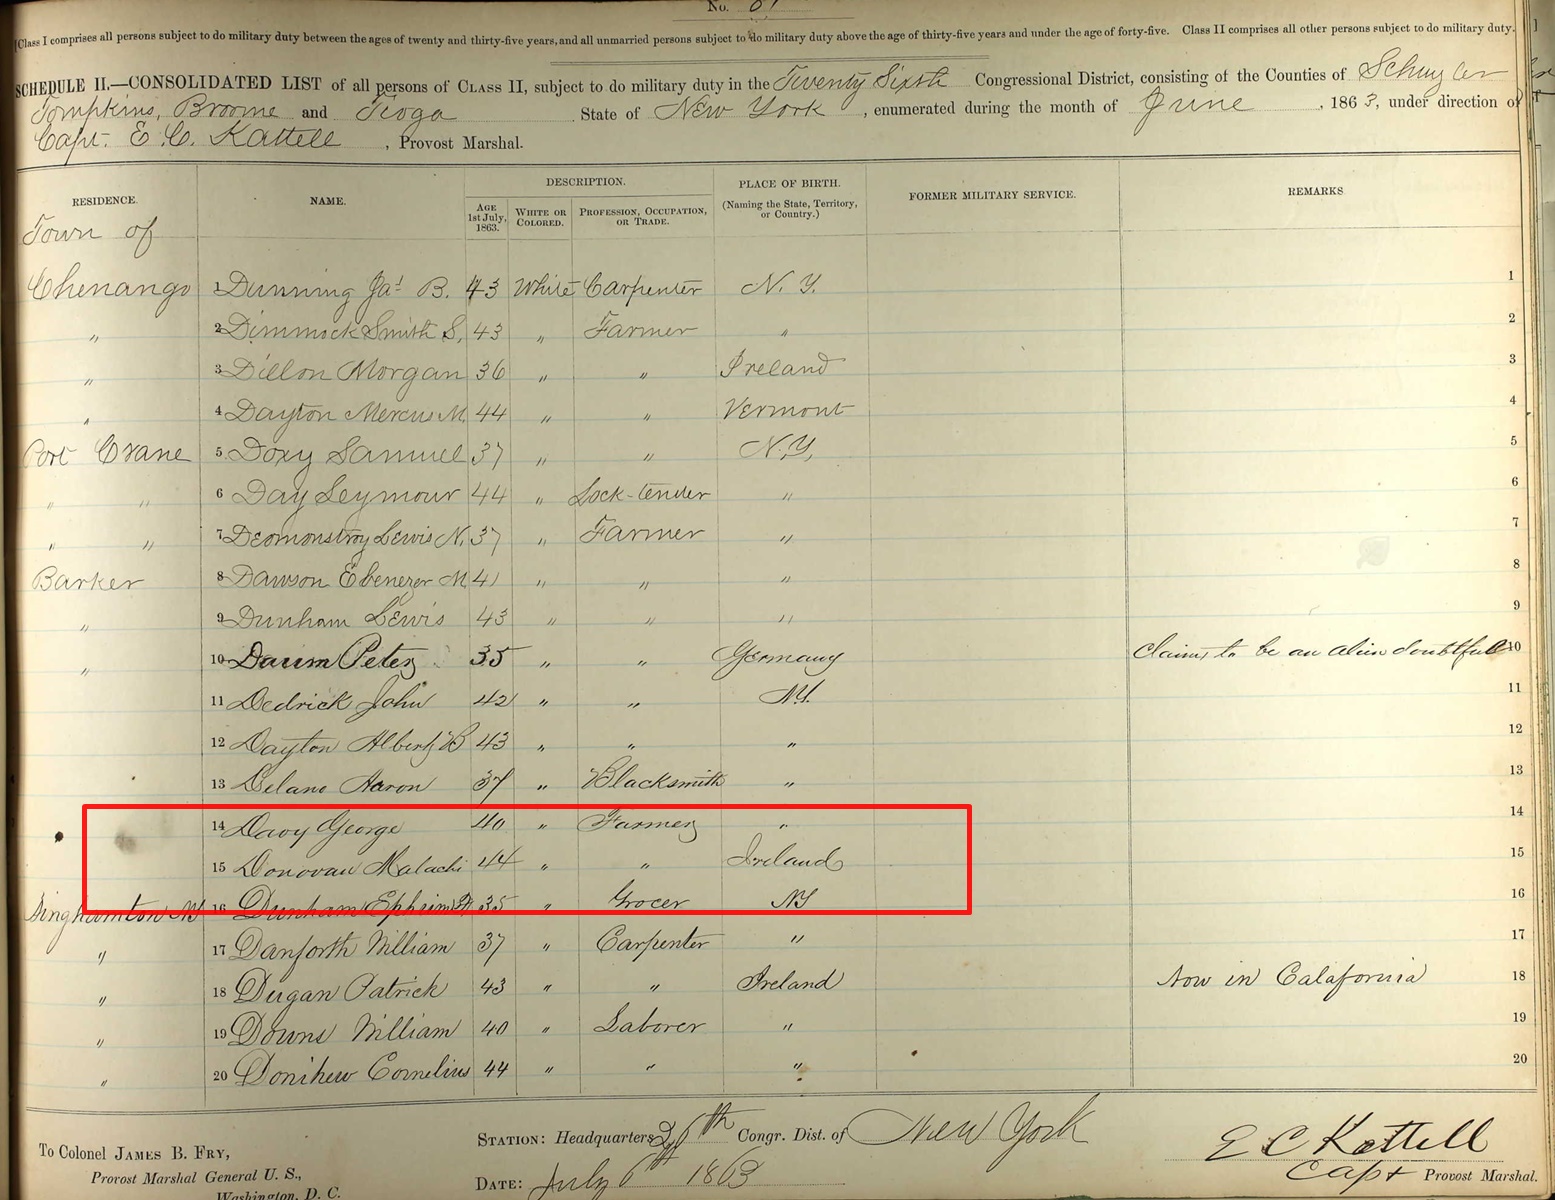 No. 61
[Class I comprises all persons subject to do military duty between the ages of twenty and thirty-five years, and all unmarried persons subject to do military duty above the age of thirty-five years and under the age of forty-five. Class II comprises all other persons subject to do military duty.]
SCHEDULE II.—CONSOLIDATED LIST of all persons of CLASS II, subject to do military duty in the Twenty Sixth Congressional District, consisting of the Counties of Schuyler
Tompkins, Broome and Tioga State of New York, enumerated during the month of June, 1863, under direction of
Capt. E. C. Kattell, Provost Marshal.
DESCRIPTION.
RESIDENCE. NAME. AGE 1st July, 1863. WHITE OR COLORED. PROFESSION, OCCUPATION, OR TRADE. PLACE OF BIRTH. (Naming the State, Territory, or Country.) FORMER MILITARY SERVICE. REMARKS
Town of
Chenango 1 Dunning Jas B. 43 White Carpenter N. Y. 1
" 2 Dimmock Smith S. 43 " Farmer " 2
" 3 Dillon Morgan 36 " " Ireland 3
" 4 Dayton Mercus M. 44 " " Vermont 4
Port Crane 5 Doxy Samuel 37 " " N.Y. 5
" " 6 Day Seymour 44 " Lock-tender " 6
" " 7 Deomonstroy Lewis N. 37 " Farmer " 7
Barker 8 Dawson Ebenezer M 41 " " " 8
" 9 Dunham Lewis 43 " " " 9
" 10 Daum Peter 35 " " Germany Claims to be an alien doubtfull 10
11 Dedrick John 42 " " N.Y. 11
12 Dayton Albert B 43 " " " 12
13 Delano Aaron 37 " Blacksmith " 13
14 Davy George 40 " Farmer " 14
15 Donovan Malachi 44 " " Ireland 15
Binghamton NY 16 Dunham Ephrim 35 " Grocer NY 16
" 17 Danforth William 37 " Carpenter " 17
" 18 Dugan Patrick 43 " " Ireland Now in Calafornia 18
" 19 Downs William 40 " Laborer " 19
" 20 Donihew Cornelius 44 " " " 20
To Colonel JAMES B. FRY,
Provost Marshal General U. S.,
Washington, D. C.
STATION: Headquarters 26th Congr. Dist. of New York
DATE: July 6th 1863
E C Kattell
Capt Provost Marshal.